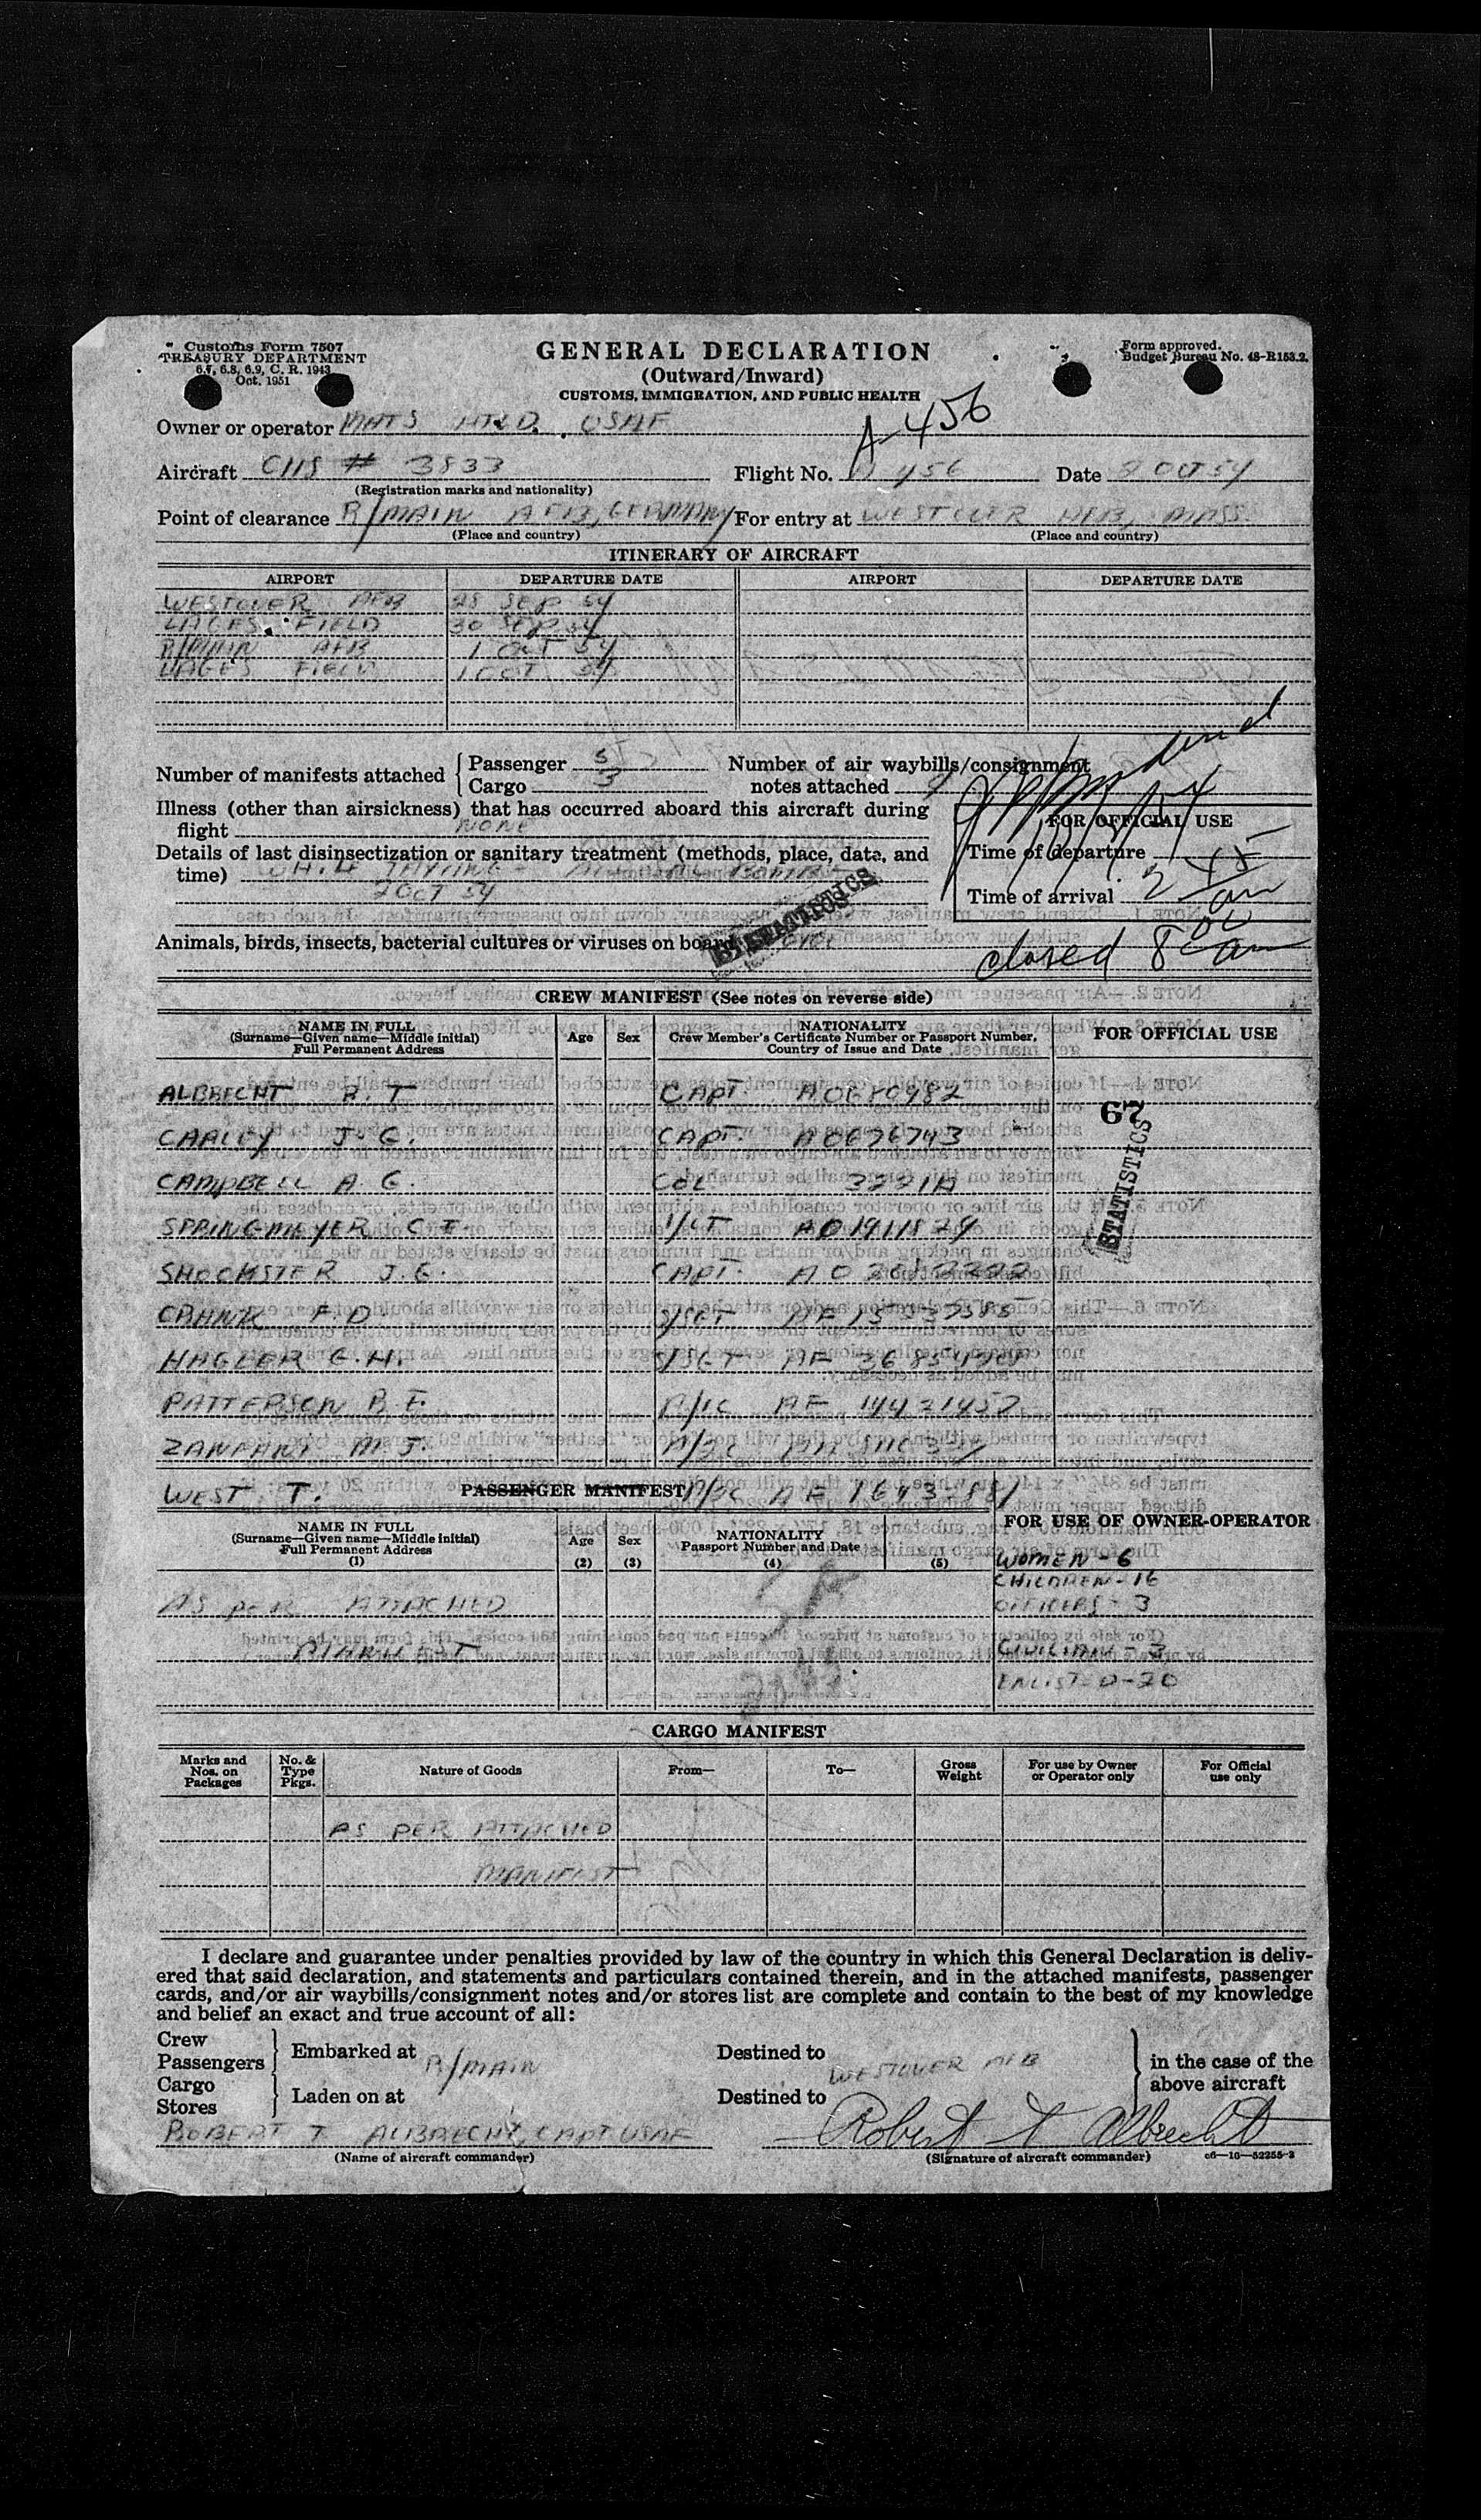 Customs Form 7507
TREASURY DEPARTMENT
6.7, 6.8, 6.9, C. R. 1943
Oct. 1951
GENERAL DECLARATION
(Outward/Inward)
CUSTOMS, IMMIGRATION, AND PUBLIC HEALTH
Form approved.
Budget Bureau No. 48-R153.2.
A-456
Owner or operator MATS USAF
Aircraft # 3833 Flight No. 456 Date 2 OCT 54
(Registration marks and nationality)
Point of clearance R/MAIN AFB, GERMANY For entry at WESTOVER AFB, MASS
(Place and country) (Place and country)
ITINERARY OF AIRCRAFT
AIRPORT DEPARTURE DATE AIRPORT DEPARTURE DATE
WESTOVER AFB 28 SEP 54
LAGES FIELD 30 SEP 54
R/MAIN AFB 1 OCT 54
LAGES FIELD 1 OCT 54
Number of manifests attached Passenger 5
Cargo 3
Number of air waybills/consignment
notes attached
Illness (other than airsickness) that has occurred aboard this aircraft during
flight NONE
Details of last disinsectization or sanitary treatment (methods, place, date, and
time)
2 OCT 54
FOR OFFICIAL USE
Time of departure
Time of arrival 2 45 am
Animals, birds, insects, bacterial cultures or viruses on board
STATISTICS
closed 8 00 am
CREW MANIFEST (See notes on reverse side)
NAME IN FULL
(Surname—Given name—Middle initial)
Full Permanent Address
Age Sex
NATIONALITY
Crew Member's Certificate Number or Passport Number,
Country of Issue and Date
FOR OFFICIAL USE
ALBRECHT R. T. CAPT. AO680982
CARLEY J. G. CAPT. AO676743
CAMPBELL A. G. COL 3221A
SPRINGMEYER C. 1/LT AO1911824
SHOCKSTER J. G. CAPT. AO
CRANK F. D. S/SGT AF
HAGLER G. H. S/SGT AF
PATTERSON R. F. A/1C AF 14421457
ZANFANT M. J. A/3C
67
STATISTICS
WEST T. PASSENGER MANIFEST AF
NAME IN FULL
(Surname—Given name—Middle initial)
Full Permanent Address
(1)
Age
(2)
Sex
(3)
NATIONALITY
Passport Number and Date
(4) (5)
FOR USE OF OWNER-OPERATOR
WOMEN - 6
CHILDREN - 16
OFFICERS - 3
CIVILIAN - 3
ENLISTED - 20
AS PER ATTACHED
MANIFEST
CARGO MANIFEST
Marks and
Nos. on
Packages
No. &
Type
Pkgs.
Nature of Goods From— To— Gross
Weight
For use by Owner
or Operator only
For Official
use only
AS PER ATTACHED
MANIFEST
I declare and guarantee under penalties provided by law of the country in which this General Declaration is deliv-
ered that said declaration, and statements and particulars contained therein, and in the attached manifests, passenger
cards, and/or air waybills/consignment notes and/or stores list are complete and contain to the best of my knowledge
and belief an exact and true account of all:
Crew
Passengers Embarked at R/MAIN Destined to WESTOVER AFB in the case of the
Cargo above aircraft
Stores Laden on at Destined to
ROBERT T. ALBRECHT, CAPT USAF Robert T Albrecht
(Name of aircraft commander) (Signature of aircraft commander) c6—16—52255-2